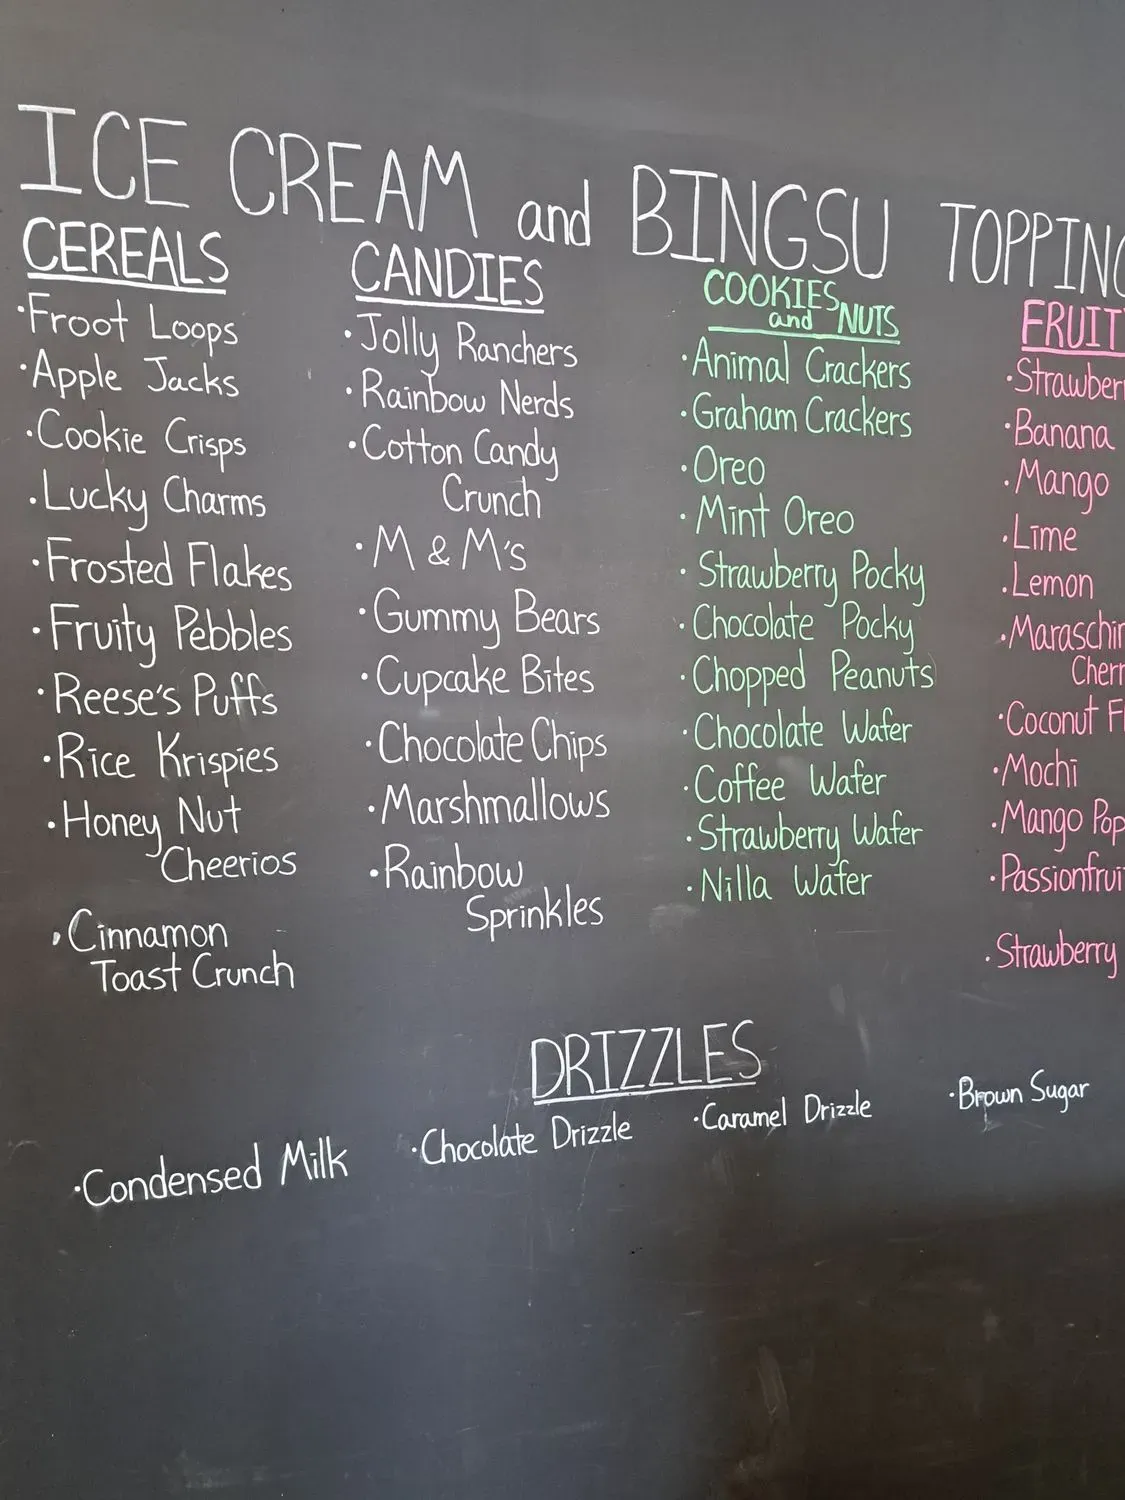 ICE CREAM and BINGSU TOPPING
CEREALS
·Froot Loops
·Apple Jacks
·Cookie Crisps
·Lucky Charms
·Frosted Flakes
·Fruity Pebbles
·Reese's Puffs
·Rice Krispies
·Honey Nut
Cheerios
·Cinnamon
Toast Crunch
CANDIES
·Jolly Ranchers
·Rainbow Nerds
·Cotton Candy
Crunch
·M & M's
·Gummy Bears
·Cupcake Bites
·Chocolate Chips
·Marshmallows
·Rainbow
Sprinkles
COOKIES
and NUTS
·Animal Crackers
·Graham Crackers
·Oreo
·Mint Oreo
·Strawberry Pocky
·Chocolate Pocky
·Chopped Peanuts
·Chocolate Wafer
·Coffee Wafer
·Strawberry Wafer
·Nilla Wafer
FRUIT
·Strawber
·Banana
·Mango
·Lime
·Lemon
·Maraschin
Cherr
·Coconut
·Mochi
·Mango Pop
·Passionfrui
·Strawberry
DRIZZLES
·Condensed Milk
·Chocolate Drizzle
·Caramel Drizzle
·Brown Sugar